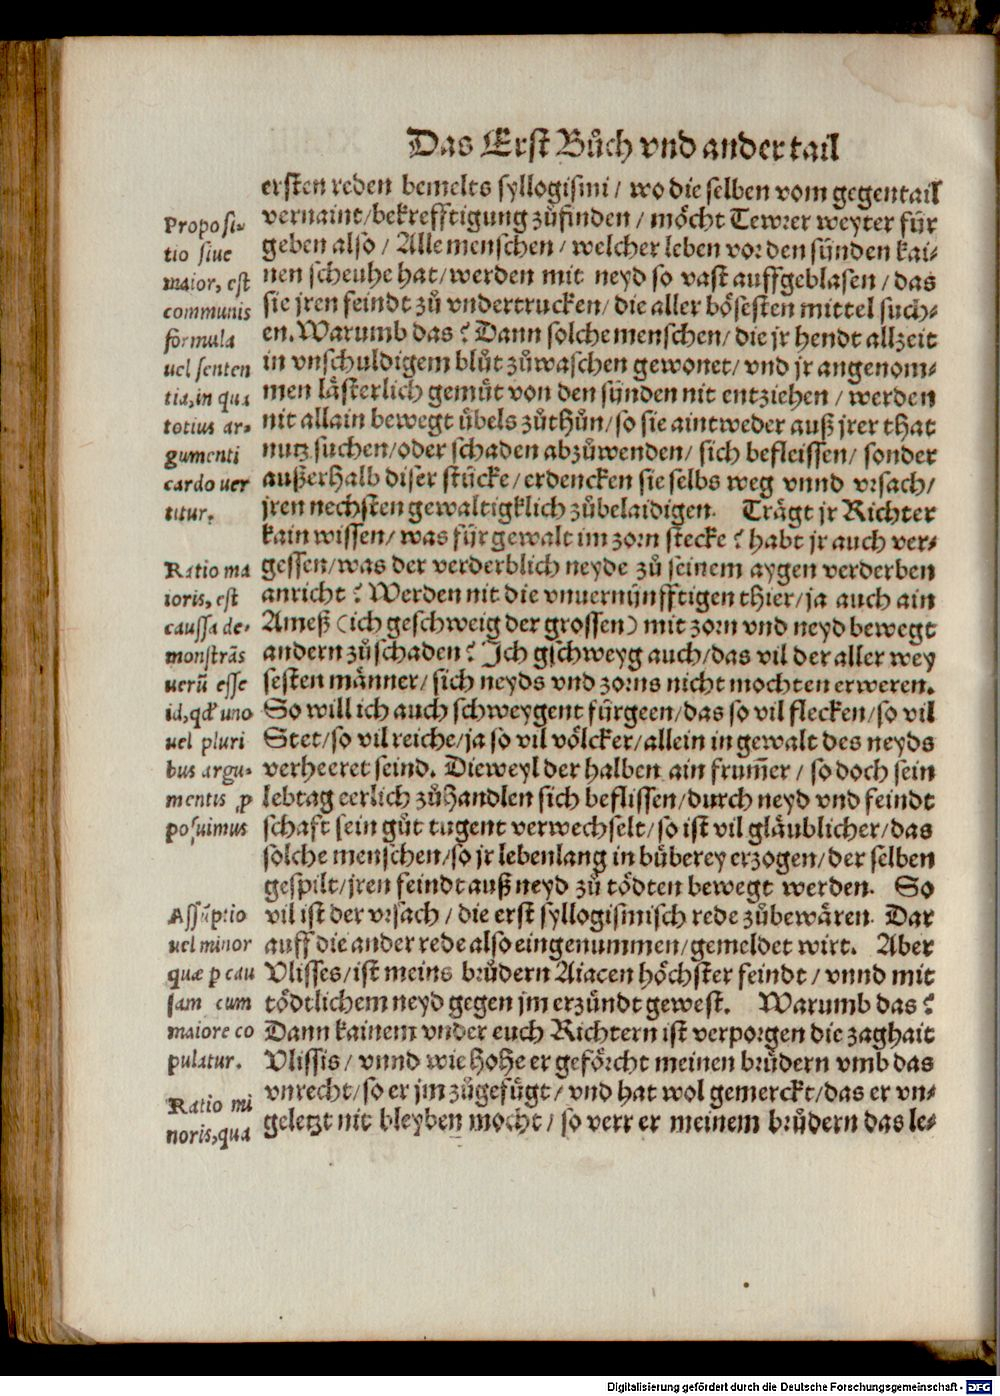 Das Erst Bůch vnd ander tail
ersten reden bemelts syllogismi / wo die selben vom gegentail
vernaint/bekrefftigung zůfinden / möcht Tewrer weyter für
geben also / Alle menschen / welcher leben vor den sünden kai⸗
nen scheuhe hat/werden mit neyd so vast auffgeblasen / das
sie jren feindt zů vndertrucken/ die aller bösesten mittel such⸗
en. Warumb das? Dann solche menschen/ die jr hendt allzeit
in vnschuldigem blůt zůwaschen gewonet/ vnd jr angenom⸗
men lästerlich gemüt von den sünden nit entziehen / werden
nit allain bewegt übels zůthůn/so sie aintweder auß jrer that
nutz suchen/oder schaden abzůwenden/ sich befleissen/ sonder
außerhalb diser stücke/ erdencken sie selbs weg vnnd vrsach/
jren nechsten gewaltigklich zůbelaidigen. Trägt jr Richter
kain wissen/ was für gewalt im zorn stecke? habt jr auch ver⸗
gessen/was der verderblich neyde zů seinem aygen verderben
anricht? Werden nit die vnuernünfftigen thier/ja auch ain
Ameß (ich geschweig der grossen) mit zorn vnd neyd bewegt
andern zůschaden? Ich gschweyg auch/das vil der aller wey
sesten männer/ sich neyds vnd zorns nicht mochten erweren.
So will ich auch schweygent fürgeen/das so vil flecken/so vil
Stet/so vil reiche/ja so vil völcker/allein in gewalt des neyds
verheeret seind. Dieweyl der halben ain frum̃er / so doch sein
lebtag eerlich zůhandlen sich beflissen/durch neyd vnd feindt
schaft sein gůt tugent verwechselt/so ist vil gläublicher/das
solche menschen/so jr lebenlang in büberey erzogen/der selben
gespilt/jren feindt auß neyd zů tödten bewegt werden. So
vil ist der vrsach / die erst syllogismisch rede zůbewären. Dar
auff die ander rede also eingenummen/gemeldet wirt. Aber
Vlisses/ist meins brůdern Aiacen höchster feindt / vnnd mit
tödtlichem neyd gegen jm erzündt gewest. Warumb das?
Dann kainem vnder euch Richtern ist verporgen die zaghait
Vlissis / vnnd wie hohe er geförcht meinen brůdern vmb das
vnrecht/so er jm zůgefůgt / vnd hat wol gemerckt/das er vn⸗
geletzt nit bleyben mocht / so verr er meinem brůdern das le⸗
Proposi⸗
tio siue
maior, est
communis
formula
uel senten
tia,in qua
totius ar⸗
gumenti
cardo uer
titur.
Ratio ma
ioris, est
caussa de⸗
monstrãs
uerũ esse
id,qd' uno
uel pluri
bus argu⸗
mentis ꝓ
posuimus
Assũptio
uel minor
quæ p cau
sam cum
maiore co
pulatur.
Ratio mi
noris,qua
Digitalisierung gefördert durch die Deutsche Forschungsgemeinschaft - DFG